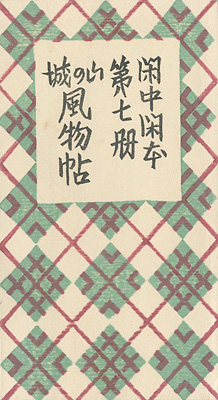 閑中閑本
第七册
山の城
風物帖